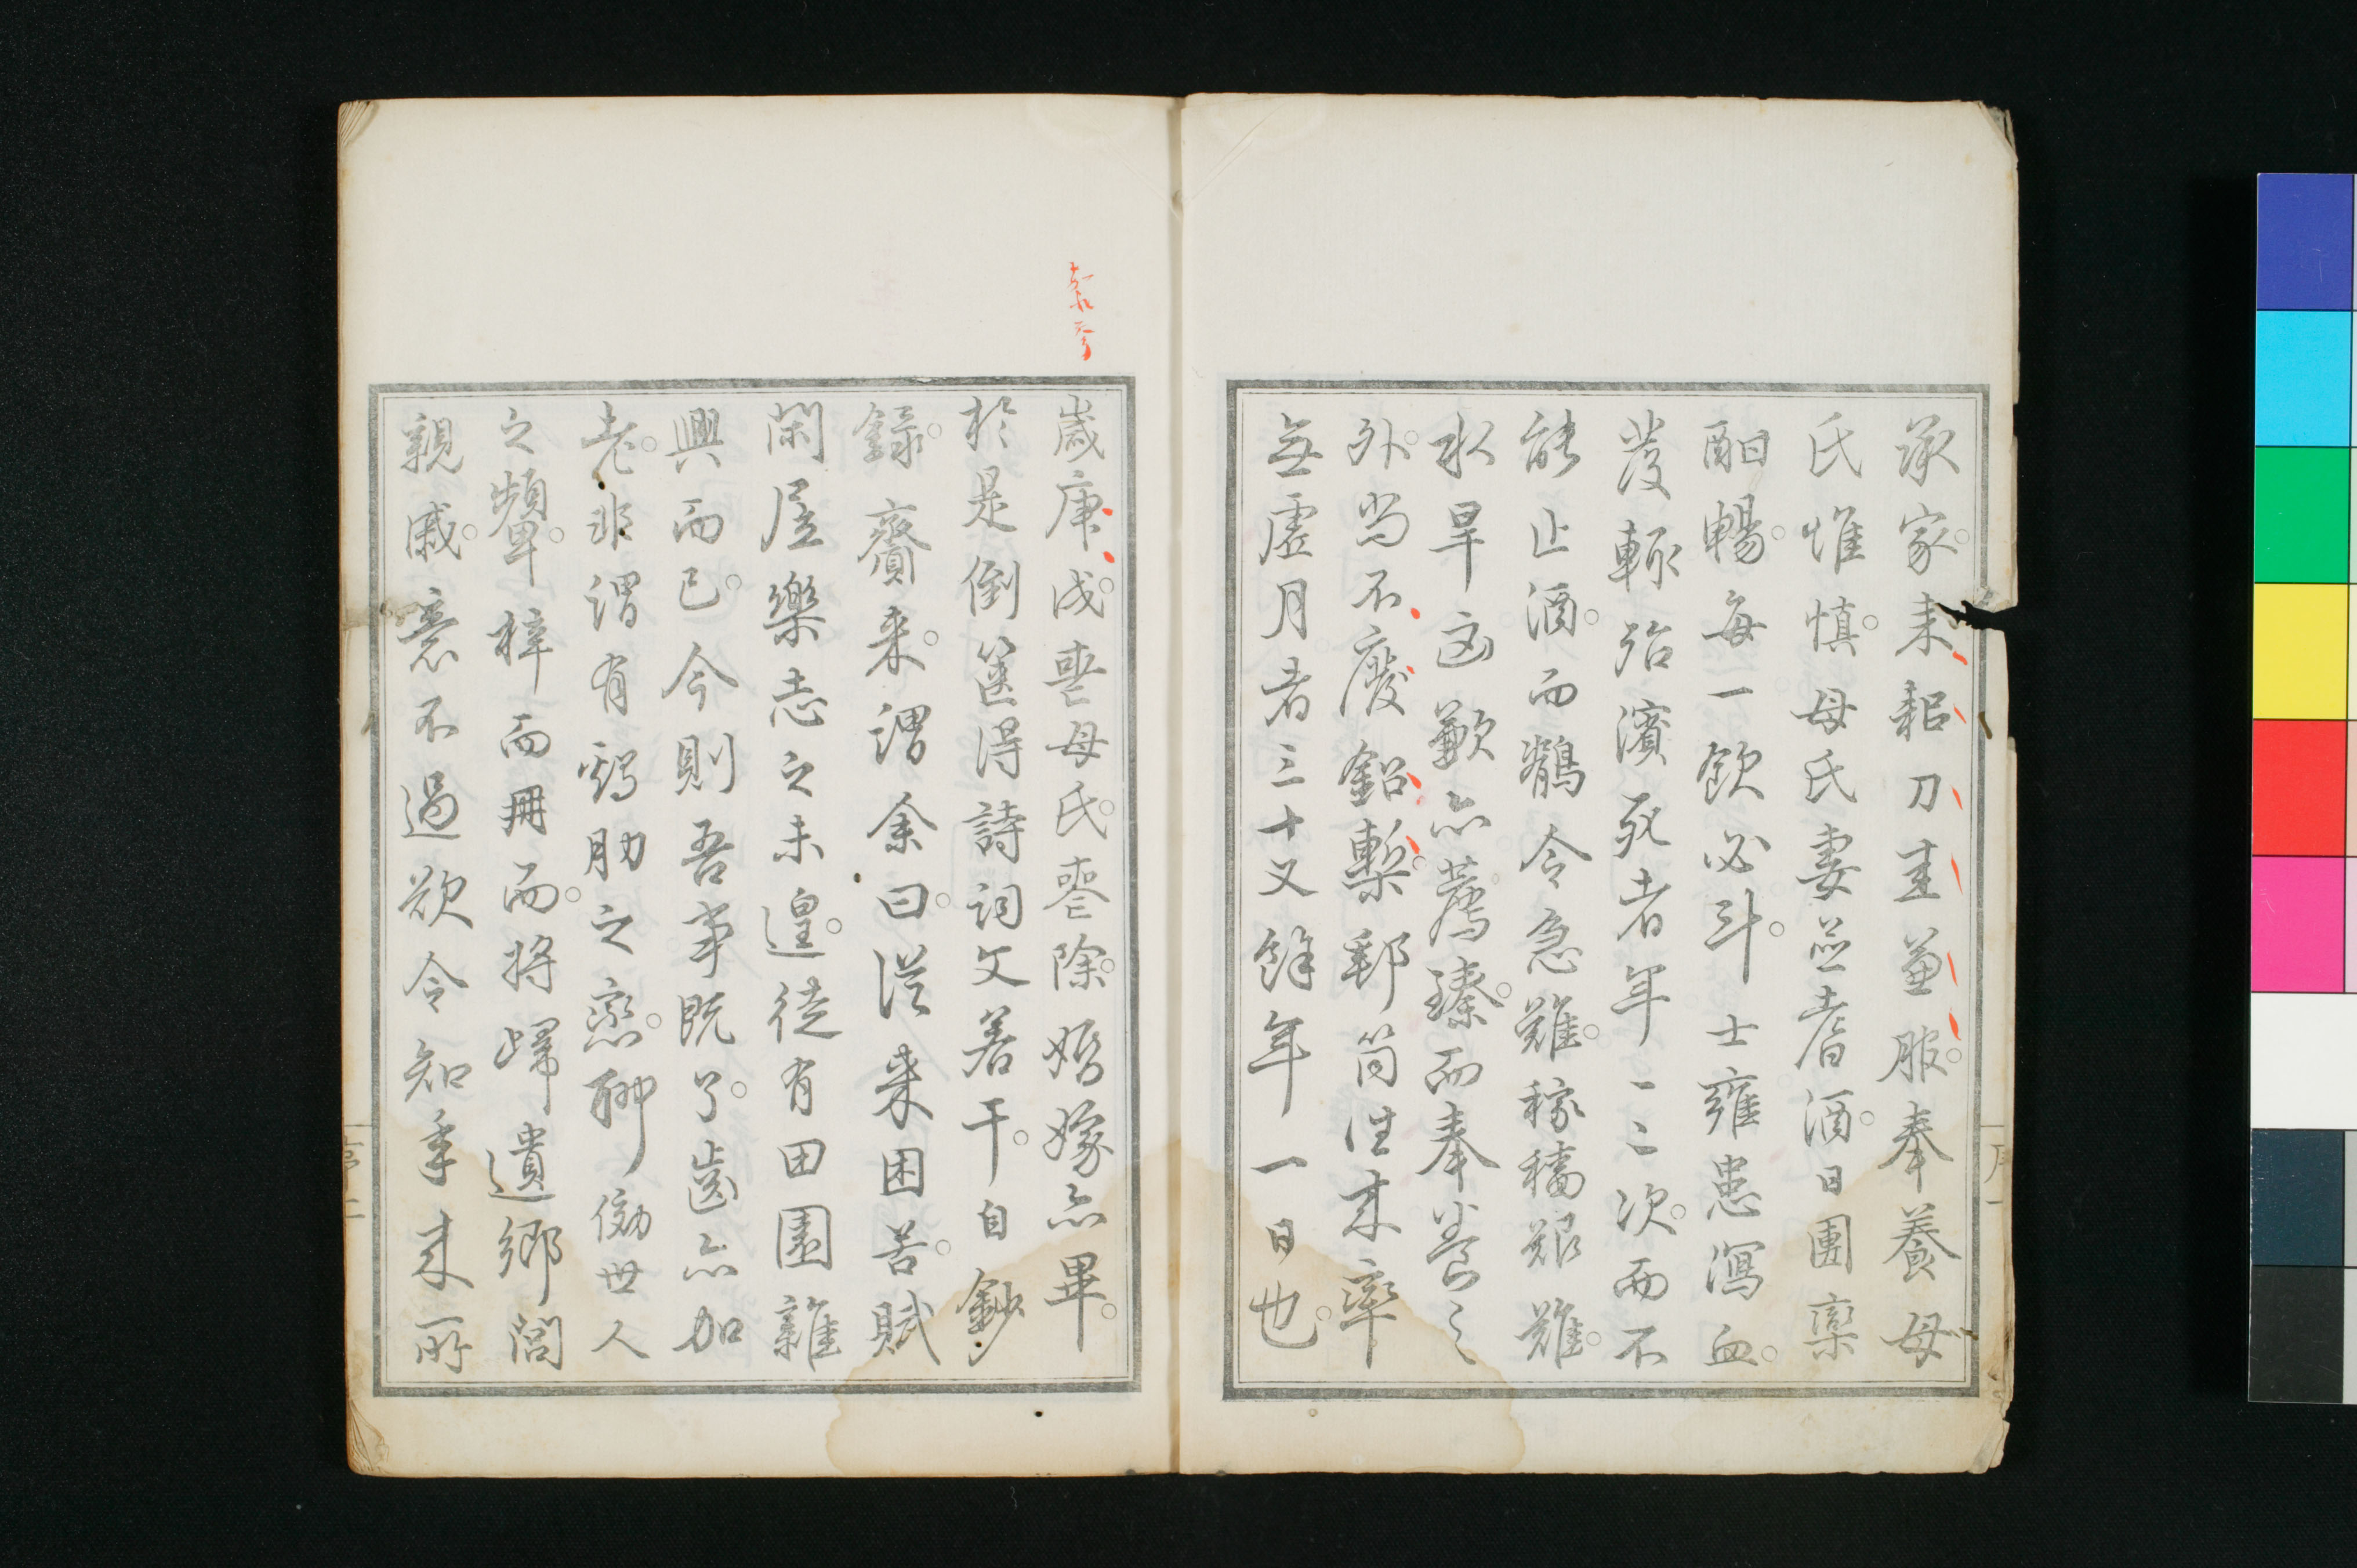 承家。耒耜刀圭兼服。奉養母
氏惟慎。母氏妻並耆酒。日團欒
酣暢。每一飲必斗。士雍患瀉血。
發輒殆濱死者年一二次。而不
能止酒。而鶺令急難。稼穡艱難。
水旱凶歉亦荐臻。而奉養之
外。尚不廢鉛槧。郵筒往來率
無虛月者三十又餘年一日也。
歲庚戌。喪母氏。喪除。婚嫁亦畢。
於是倒篋得詩詞文若干。自鈔
錄。齎來。謂余曰。從來困苦。賦
閑居樂志之未遑。徒有田園雜
興而已。今則吾事既了。齒亦加
老。非謂有鷄肋之戀。聊傚世人
之顰。梓而冊而。將歸遺鄉閭
親戚。意不過欲令知年來所
序一
序二